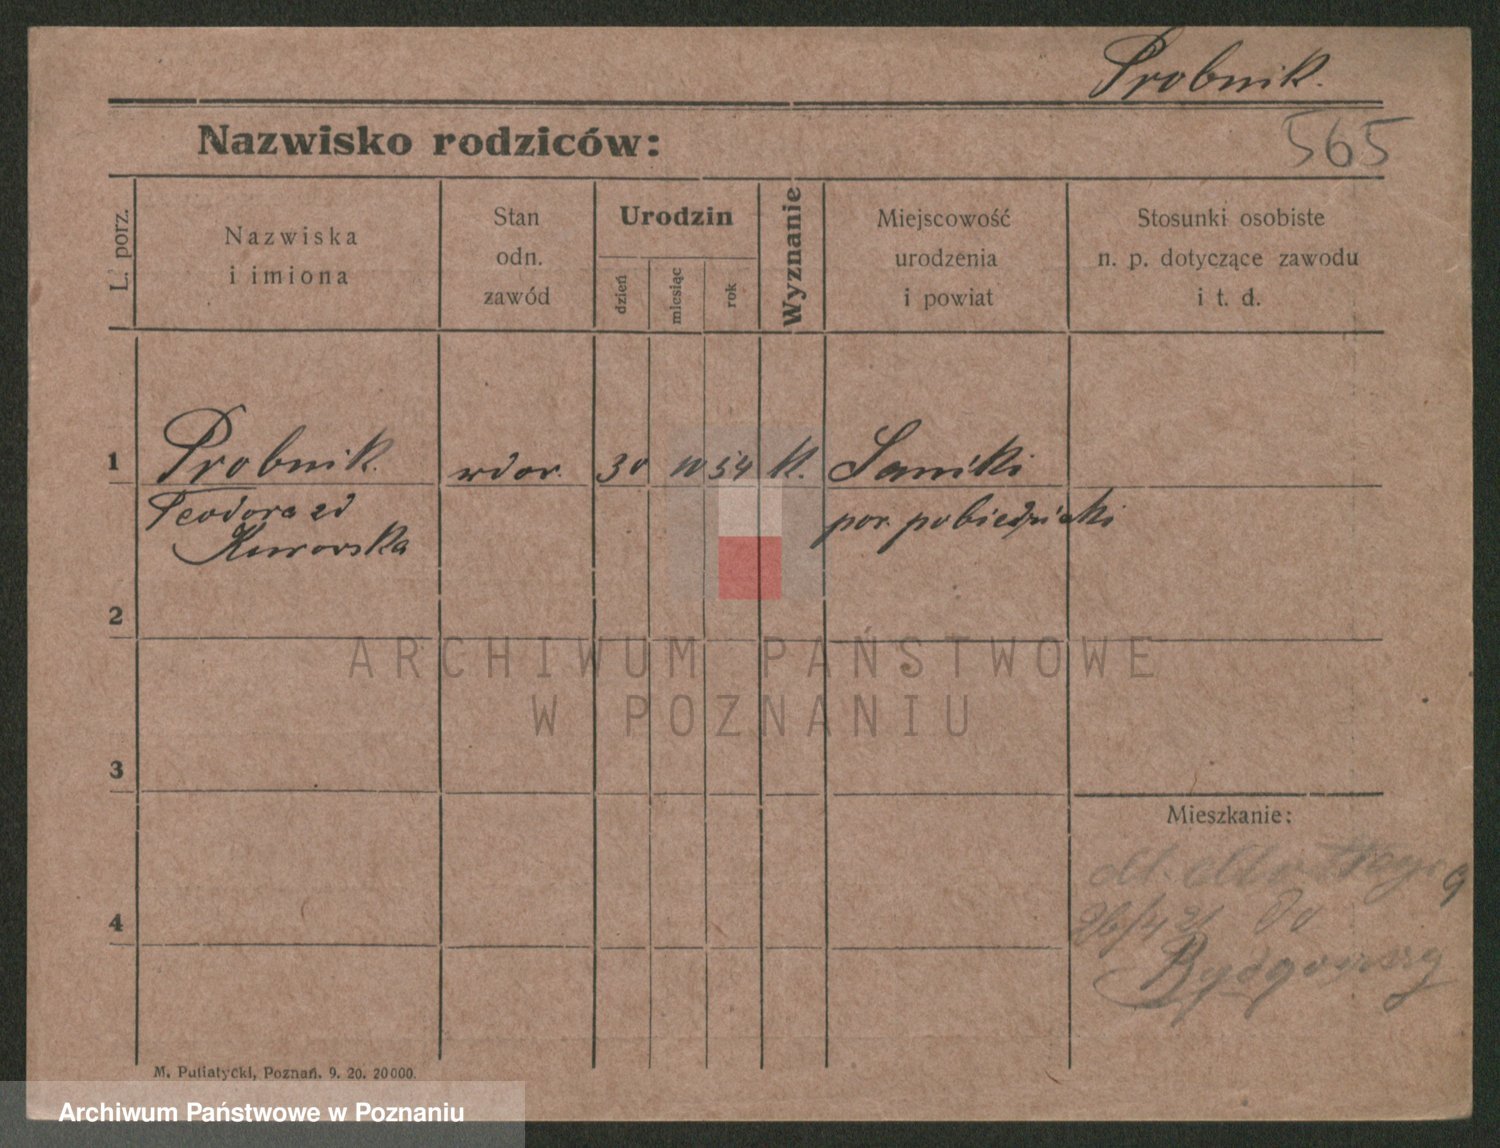 Probnik.
Nazwisko rodziców:
565
L. porz.
Nazwiska
i imiona
Stan
odn.
zawód
Urodzin
dzień
miesiąc
rok
Wyznanie
Miejscowość
urodzenia
i powiat
Stosunki osobiste
n. p. dotyczące zawodu
i t. d.
1
Probnik.
wdow.
30
10
54
k.
Saniki
Teodora zd
Kurowska
pow. pobiedziski
2
ARCHIWUM PAŃSTWOWE
W POZNANIU
3
Mieszkanie:
9
26/4 21 do
4
Bydgoszczy
M. Putiatycki, Poznań. 9. 20. 20000.
Archiwum Państwowe w Poznaniu